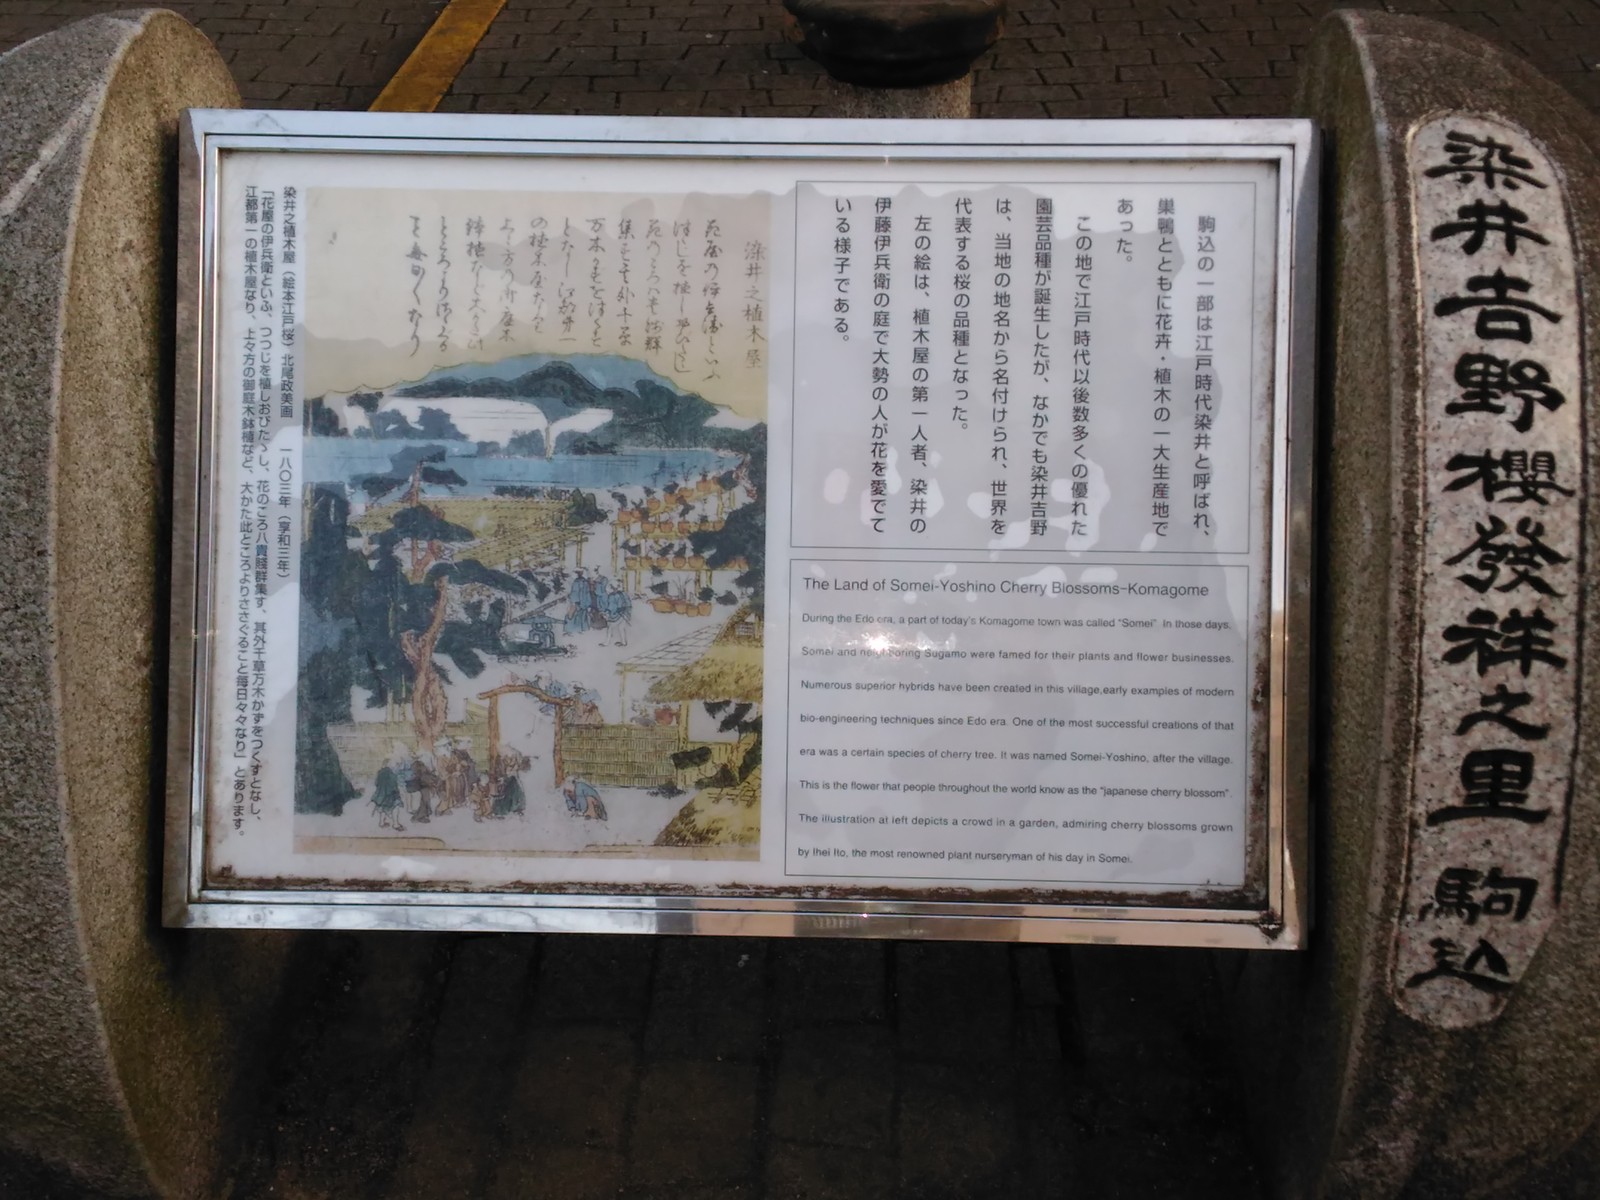 染井吉野櫻發祥之里 駒込
駒込の一部は江戸時代染井と呼ばれ、
巣鴨とともに花卉・植木の一大生産地で
あった。
この地で江戸時代以後数多くの優れた
園芸品種が誕生したが、なかでも染井吉野
は、当地の地名から名付けられ、世界を
代表する桜の品種となった。
左の絵は、植木屋の第一人者、染井の
伊藤伊兵衛の庭で大勢の人が花を愛でて
いる様子である。
The Land of Somei-Yoshino Cherry Blossoms–Komagome
During the Edo era, a part of today's Komagome town was called "Somei". In those days,
Somei and neighboring Sugamo were famed for their plants and flower businesses.
Numerous superior hybrids have been created in this village,early examples of modern
bio-engineering techniques since Edo era. One of the most successful creations of that
era was a certain species of cherry tree. It was named Somei-Yoshino, after the village.
This is the flower that people throughout the world know as the "japanese cherry blossom".
The illustration at left depicts a crowd in a garden, admiring cherry blossoms grown
by Ihei Ito, the most renowned plant nurseryman of his day in Somei.
染井之植木屋
染井之植木屋（絵本江戸桜）北尾政美画 一八〇三年（享和三年）
「花屋の伊兵衛といふ、つつじを植しおびたゝし、花のころハ貴賤群集す、其外千草万木かずをつくすとなし、
江都第一の植木屋なり、上々方の御庭木鉢植など、大かた此ところよりささぐること毎日々々なり」とあります。